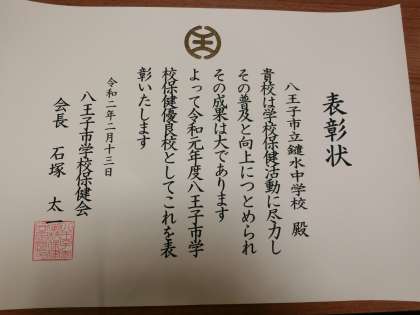 表彰状
八王子市立鑓水中学校 殿
貴校は学校保健活動に尽力し
その普及と向上につとめられ
その成果は大であります
よって令和元年度八王子市学
校保健優良校としてこれを表
彰いたします
令和二年二月十三日
八王子市学校保健会
会長 石塚 太一